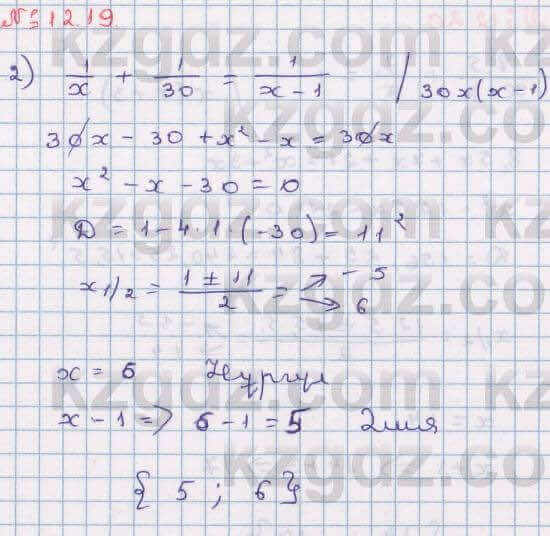 № 12.19
2) 1/x + 1/30 = 1/(x - 1) / 30x(x-1)
30x - 30 + x² - x = 30x
x² - x - 30 = 0
D = 1 - 4·1·(-30) = 11²
x1/2 = (1 ± 11)/2 = → -5 → 6
x = 6 Нургул
x - 1 => 6 - 1 = 5 Элия
{ 5 ; 6 }
kzgdz.com